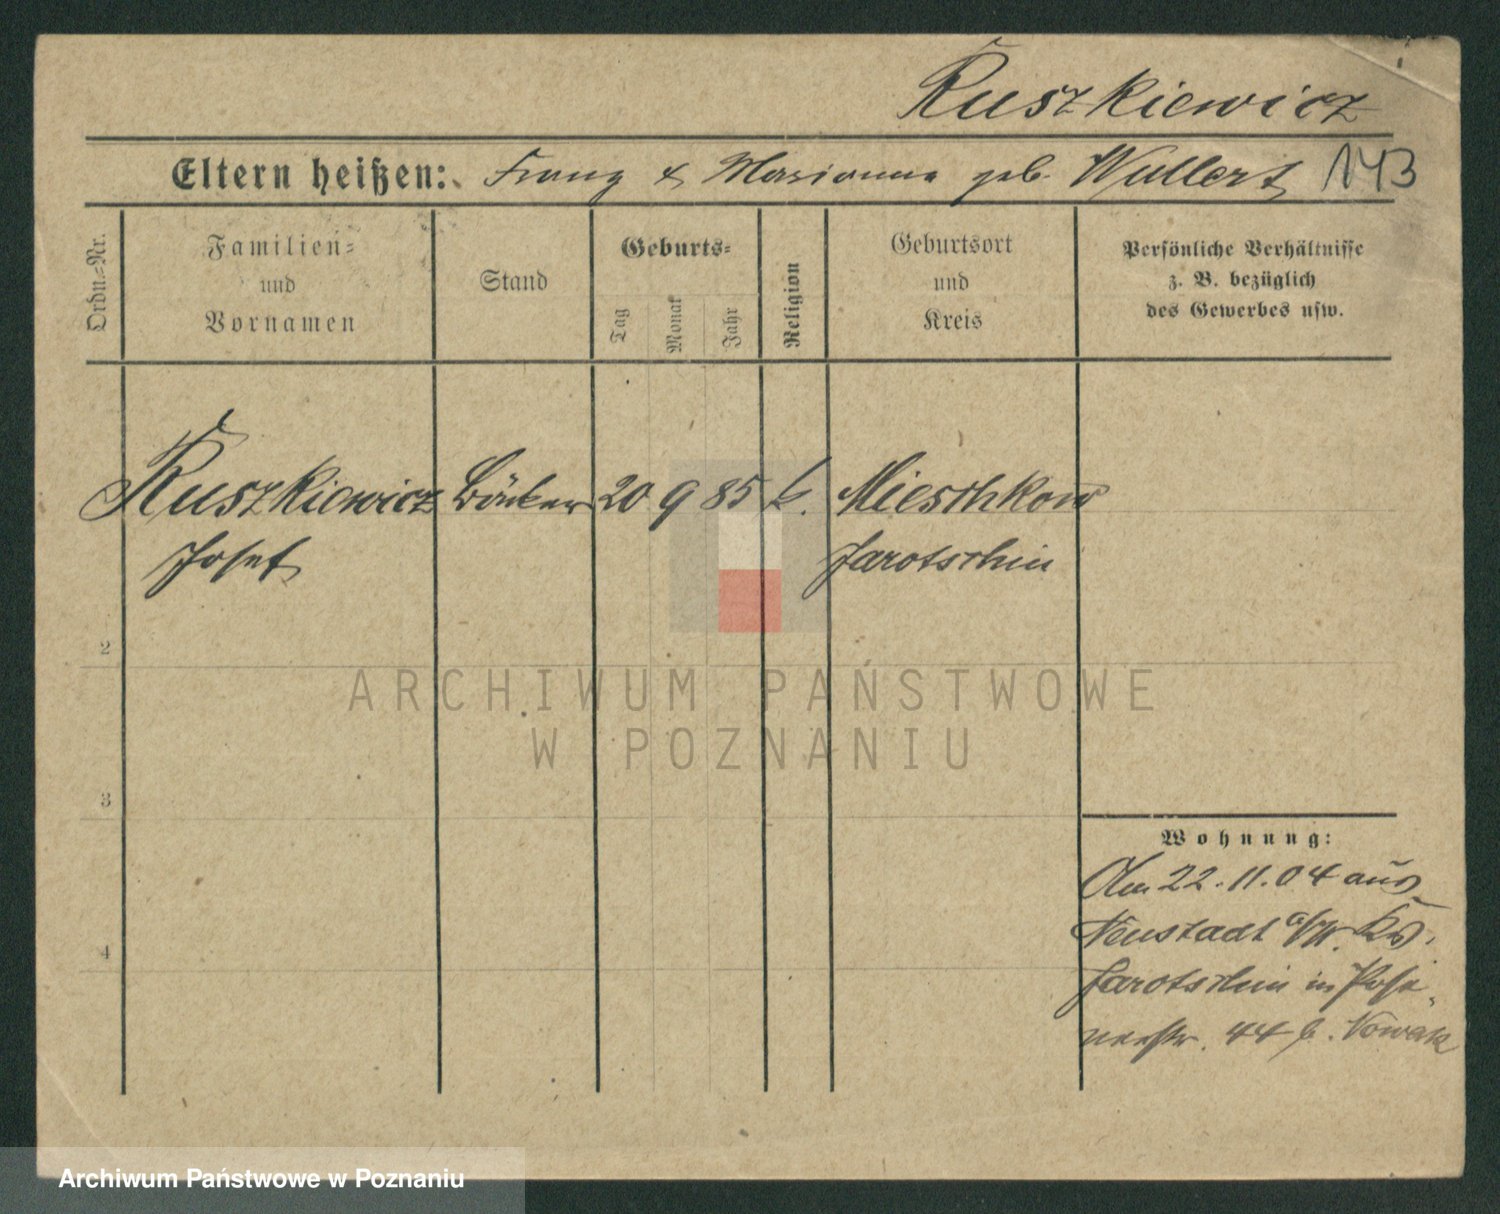 Ruszkiewicz
Eltern heißen: Franz & Marianna geb. Wullert 143
Ordn.=Nr.
Familien=
und
Vornamen
Stand
Geburts=
Tag
Monat
Jahr
Religion
Geburtsort
und
Kreis
Persönliche Verhältnisse
z. B. bezüglich
des Gewerbes usw.
Ruszkiewicz Bäcker 20 9 85 k. Mieschkow
Josef Jarotschin
2
3
4
Wohnung:
Am 22.11.04 aus
Neustadt a/W. Krs.
Jarotschin in Pose-
nerstr. 44 b. Nowak
ARCHIWUM PAŃSTWOWE
W POZNANIU
Archiwum Państwowe w Poznaniu